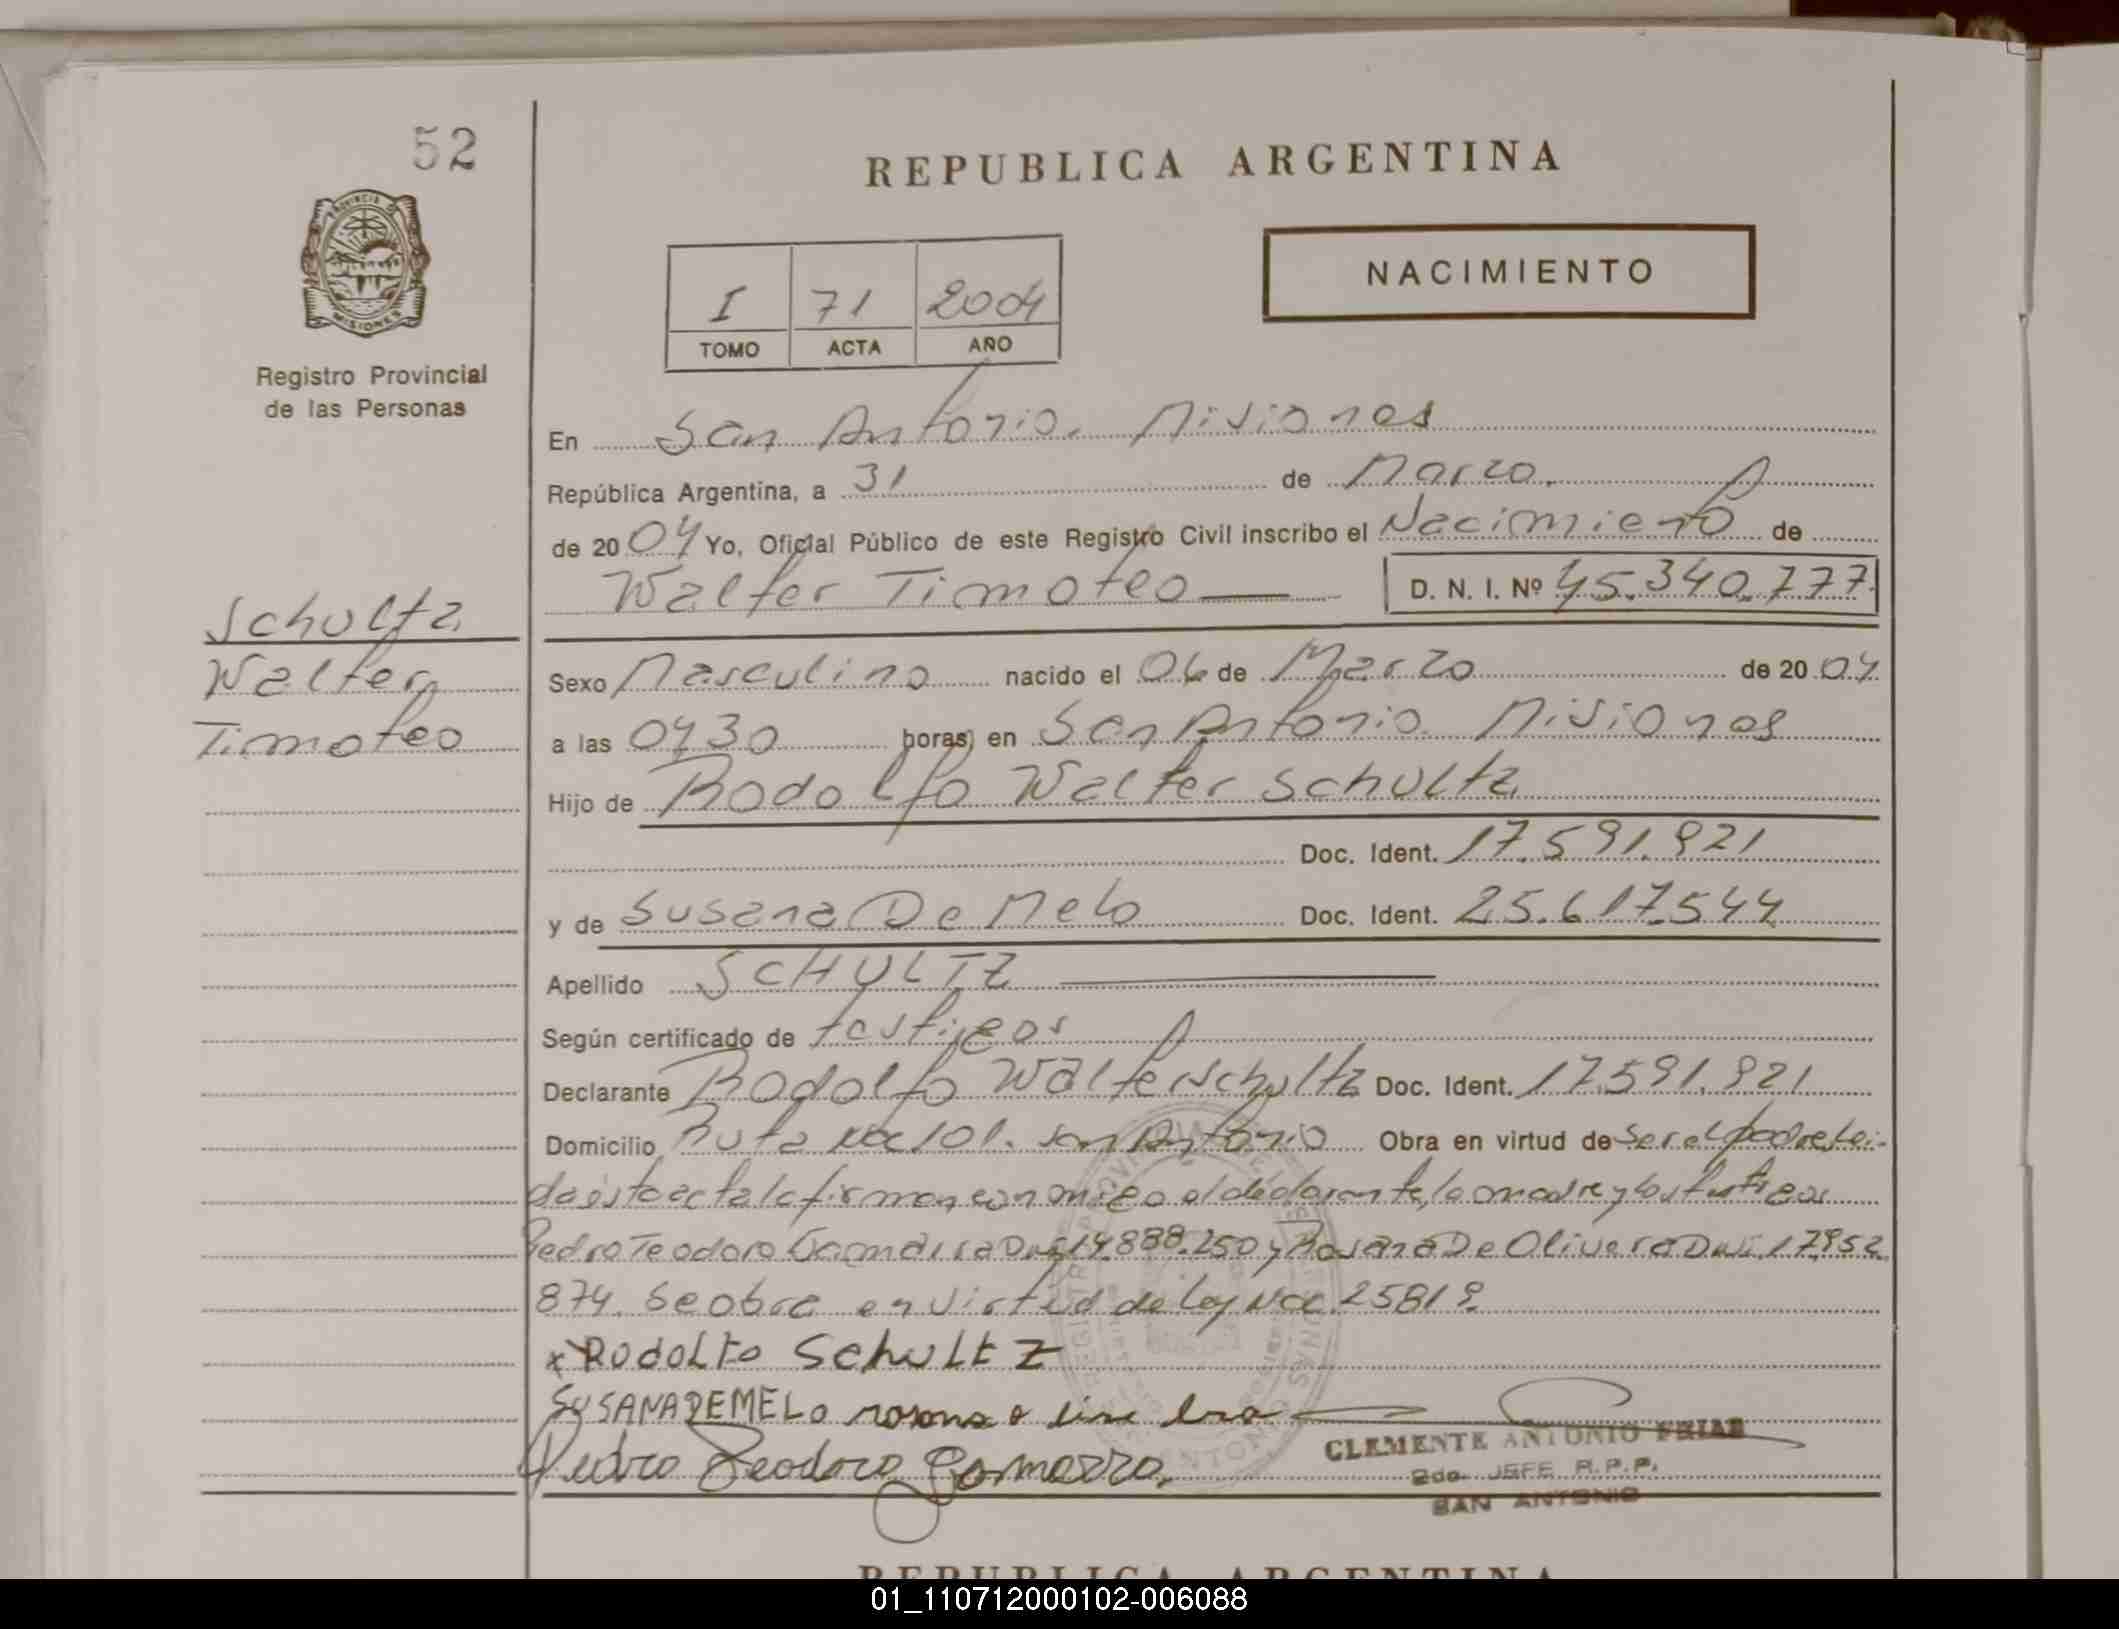 52
REPUBLICA ARGENTINA
NACIMIENTO
I 71 2004
TOMO ACTA AÑO
PROVINCIA DE
MISIONES
Registro Provincial
de las Personas
En San Antonio. Misiones
República Argentina, a 31 de Marzo.
de 2004 Yo, Oficial Público de este Registro Civil inscribo el Nacimiento de
Walter Timoteo D. N. I. Nº 45.340.777
Schultz
Walter
Timoteo
Sexo Masculino nacido el 06 de Marzo de 2004
a las 0430 horas, en San Antonio. Misiones
Hijo de Rodolfo Walter Schultz
Doc. Ident. 17.591.921
y de Susana De Melo Doc. Ident. 25.617.544
Apellido SCHULTZ
Según certificado de testigos
Declarante Rodolfo Walter Schultz Doc. Ident. 17.591.921
Domicilio Ruta 101. San Antonio Obra en virtud de ser el padre lei-
da ésta acta la firman conmigo el declarante, la madre y los testigos
Pedro Teodoro 14.888.250 y Rosana De Olivera 17.952
874. Se obra en virtud de Ley 25819.
x Rodolfo Schultz
SUSANA DE MELO rosana
Pedro Teodoro Gomarro.
CLEMENTE ANTONIO FRIAS
2do. JEFE R.P.P.
SAN ANTONIO
REPUBLICA ARGENTINA
01_110712000102-006088